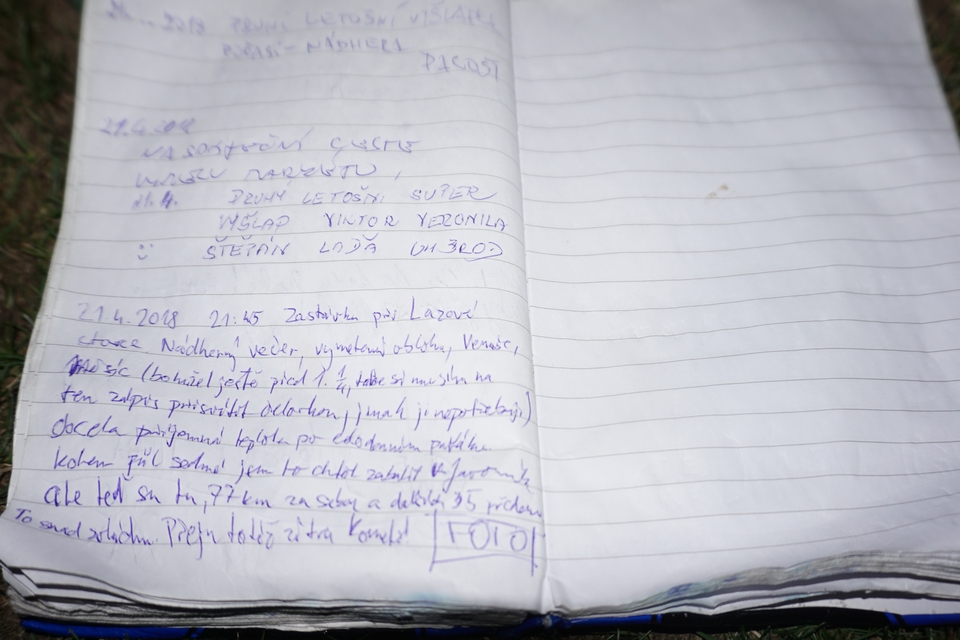 2018 PRVNÍ LETOŠNÍ VÝŠLAP
POČASÍ - NÁDHERA
21.4. 2018
21.4. DRUHÝ LETOŠNÍ SUPER
VÝŠLAP VIKTOR VERONIKA
:) ŠTĚPÁN LAĎA UH. BROD
21.4.2018 21:45 Zastávka při Lazové
stovce Nádherný večer, vymetená obloha, Venuše,
měsíc (bohužel ještě před 1. 1/4, takže si musím na
ten zápis přisvítit čelovkou, jinak ji nepotřebuji)
docela příjemná teplota po celodenním
kolem půl sedmé jsem to chtěl zabalit v
ale teď su tu, 77 km za sebou a dalších 35 předemnou
To snad zvládnu. Přeju totéž zítra Kometě!